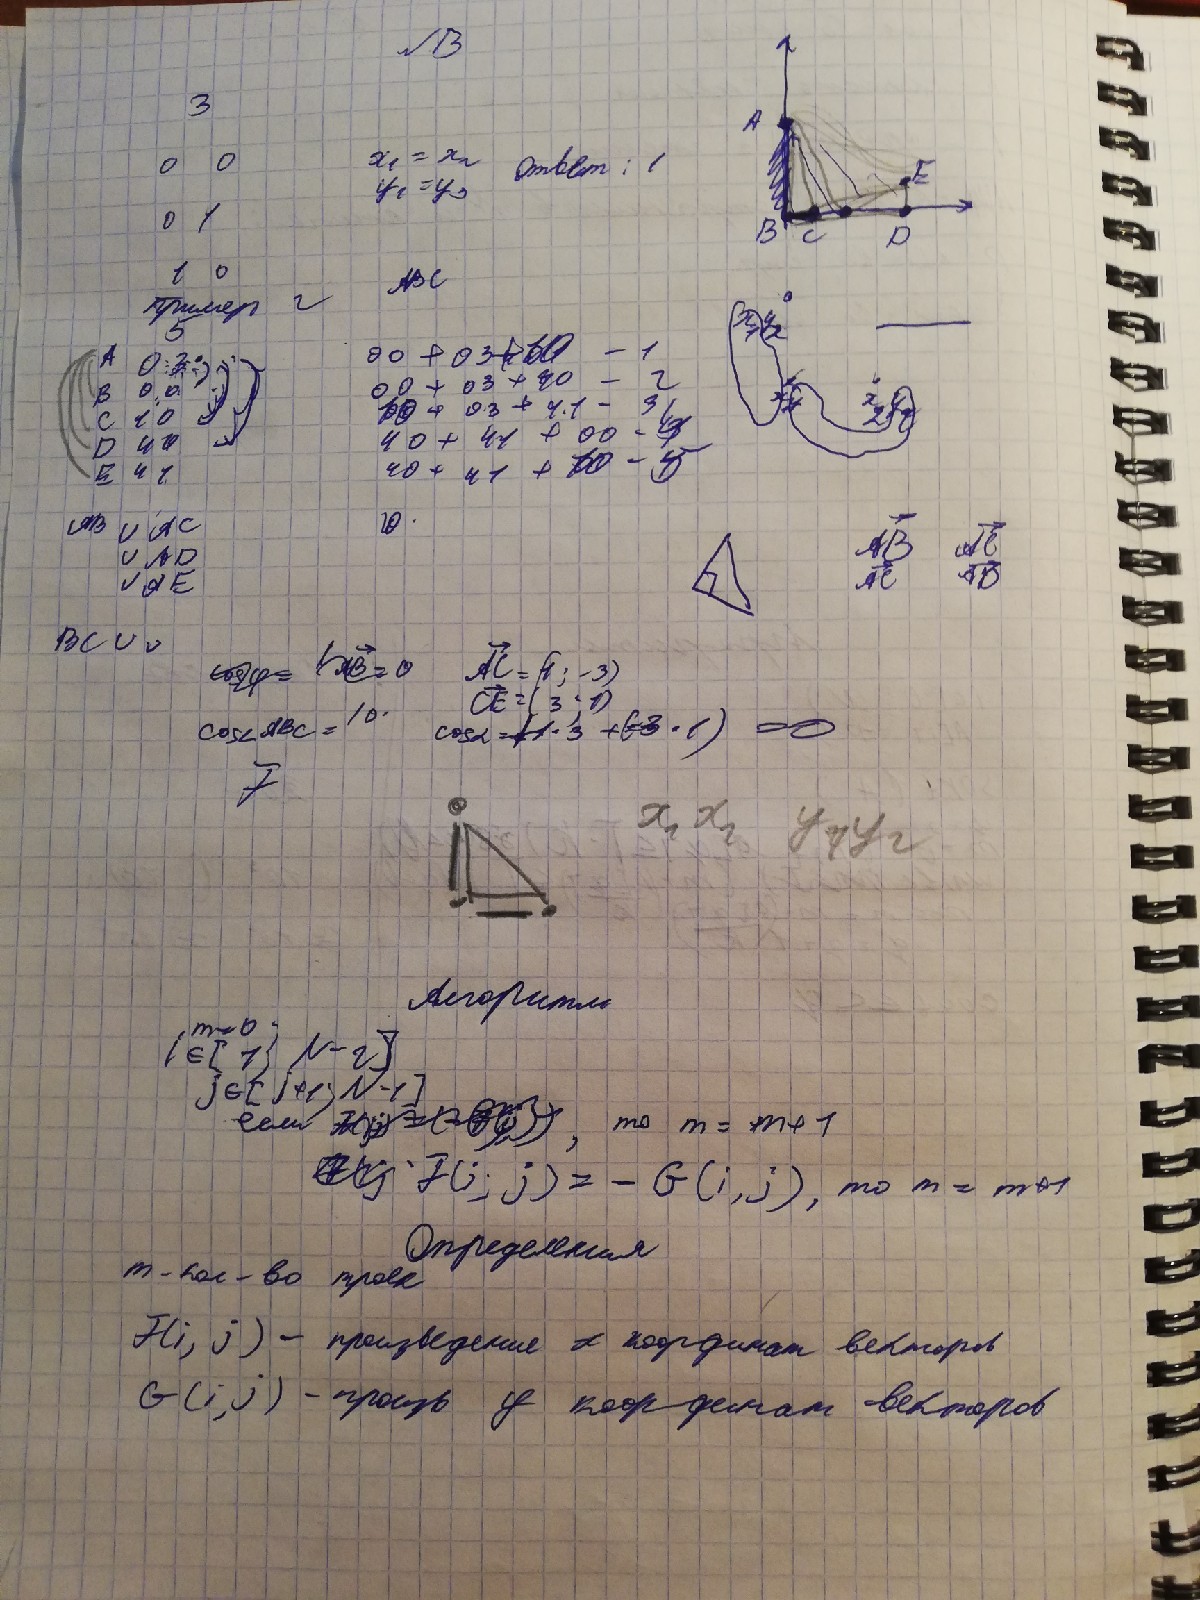 √B
3
0 0
x₁ = x₂ Ответ: 1
y₁ = y₂
0 1
1 0
A
E
B C D
Пример 2
ABC
5
A 0 3
B 0 0
C 1 0
D 4 0
E 4 1
00 + 03 + 10 - 1
00 + 03 + 40 - 2
10 + 03 + 4.1 - 3
40 + 41 + 00 - 4
40 + 41 + 10 - 5
AB ∪ AC
∪ AD
∪ AE
AB AC
AC AB
BC ∪ ∪
AC = (1; -3)
CE = (3; 1)
cos ABC =
cosα = (1·3 + (-3·1) = 0
F
x₁ x₂ y₁ y₂
Алгоритм
m=0
i ∈ [1; N-2]
j ∈ [i+1; N-1]
если , то m = m+1
F(i; j) = - G(i, j), то m = m+1
Определения
m - кол-во троек
F(i, j) - произведение x координат векторов
G(i, j) - произв y координат векторов